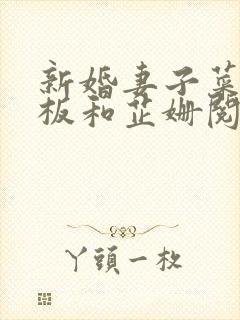 新婚妻子菜
板和芷姗阅
丫頭一枚